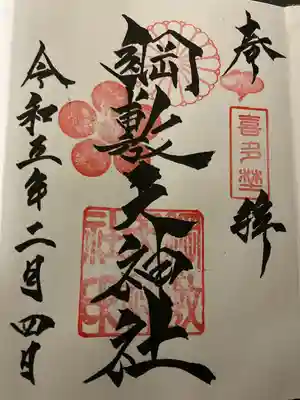 奉拝
喜多埜
綱敷天神社
令和五年二月四日